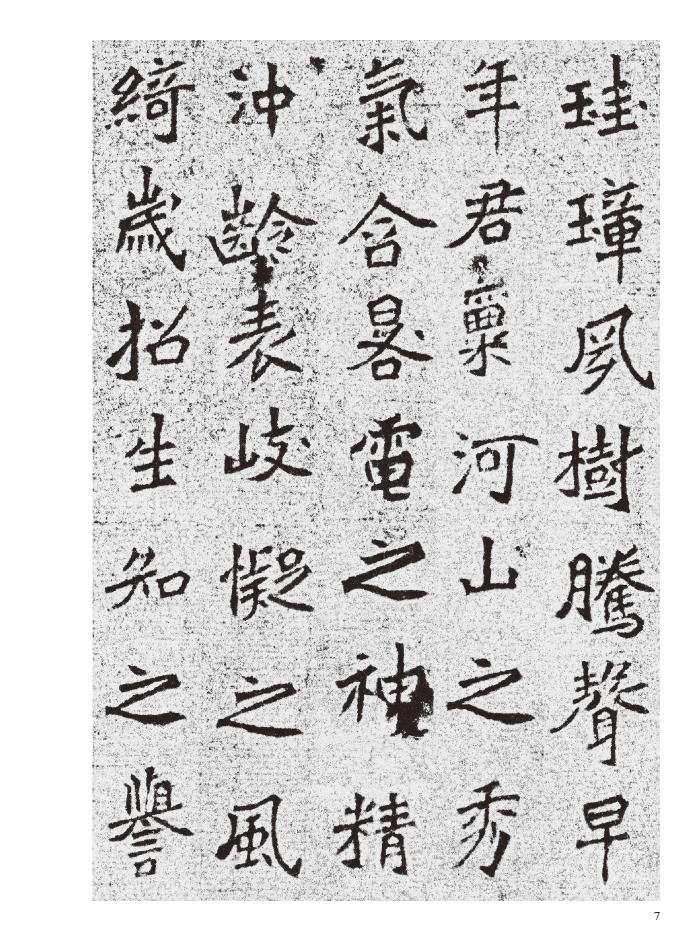 珪璋夙樹騰聲早
年君稟河山之秀
氣含晷電之神精
沖齡表岐嶷之風
綺歲招生知之譽
7